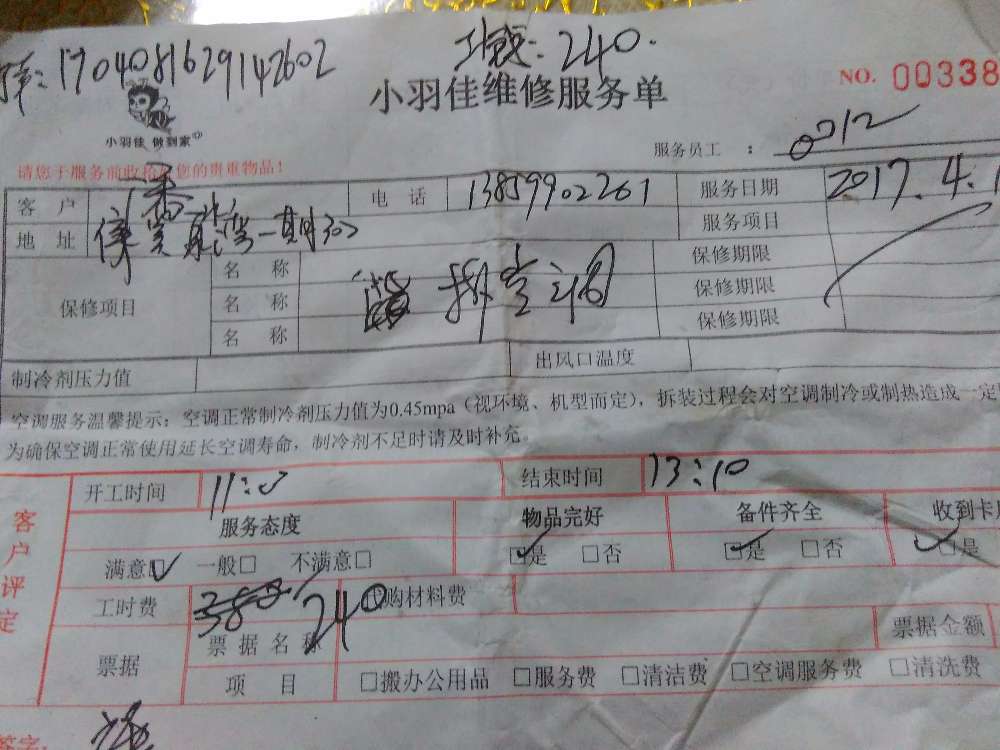 单:1704081629142602 工钱:240.
小羽佳维修服务单 NO. 00338
小羽佳 做到家
服务员工 : 0012
请您于服务前收拾好您的贵重物品!
客户 电话 13859902261 服务日期 2017.4.1
地址 湾一期 服务项目
保修项目 名称 保修期限
名称 拆空调 保修期限
名称 保修期限
制冷剂压力值 出风口温度
空调服务温馨提示:空调正常制冷剂压力值为0.45mpa(视环境、机型而定),拆装过程会对空调制冷或制热造成一定
为确保空调正常使用延长空调寿命,制冷剂不足时请及时补充。
客户评定
开工时间 11:0 结束时间 13:10
服务态度 物品完好 备件齐全 收到卡
满意□✓ 一般□ 不满意□ ☑是 □否 ☑是 □否 ☑是
工时费 380 240 代购材料费
票据 票据名称 票据金额
项目 □搬办公用品 □服务费 □清洁费 □空调服务费 □清洗费
签字: